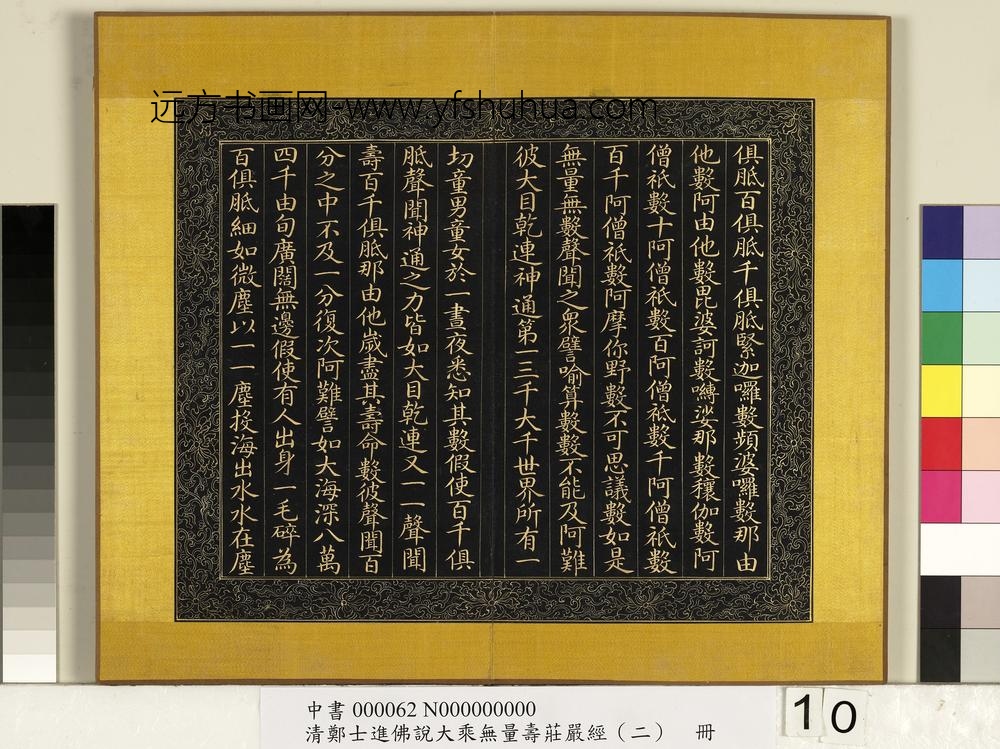 远方书画网-www.yfshuhua.com
俱胝百俱胝千俱胝緊迦囉數頻婆囉數那由
他數阿由他數毘婆訶數嚩娑那數穰伽數阿
僧祇數十阿僧祇數百阿僧祇數千阿僧祇數
百千阿僧祇數阿摩你野數不可思議數如是
無量無數聲聞之眾譬喻算數數不能及阿難
彼大目乾連神通第一三千大千世界所有一
切童男童女於一晝夜悉知其數假使百千俱
胝聲聞神通之力皆如大目乾連又一一聲聞
壽百千俱胝那由他歲盡其壽命數彼聲聞百
分之中不及一分復次阿難譬如大海深八萬
四千由旬廣闊無邊假使有人出身一毛碎為
百俱胝細如微塵以一一塵投海出水水在塵
中書 000062 N000000000
清鄭士進佛說大乘無量壽莊嚴經（二） 冊
10